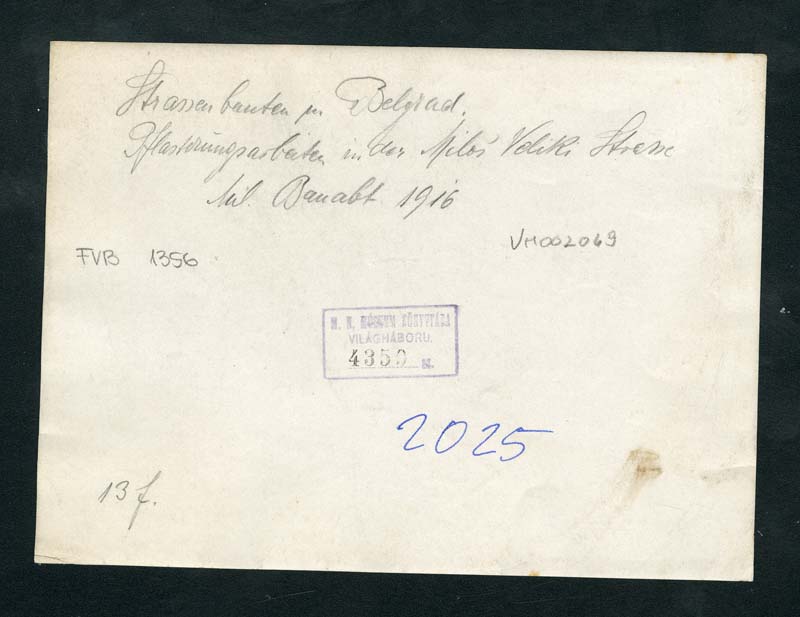 Strassenbauten in Belgrad.
Pflasterungsarbeiten in der Miloš Veliki Strasse
Mil. Bauabt 1916
FVB 1356
VH002049
M. N. MÚZEUM KÖNYVTÁRA
VILÁGHÁBORU.
4350 sz.
2025
13 f.